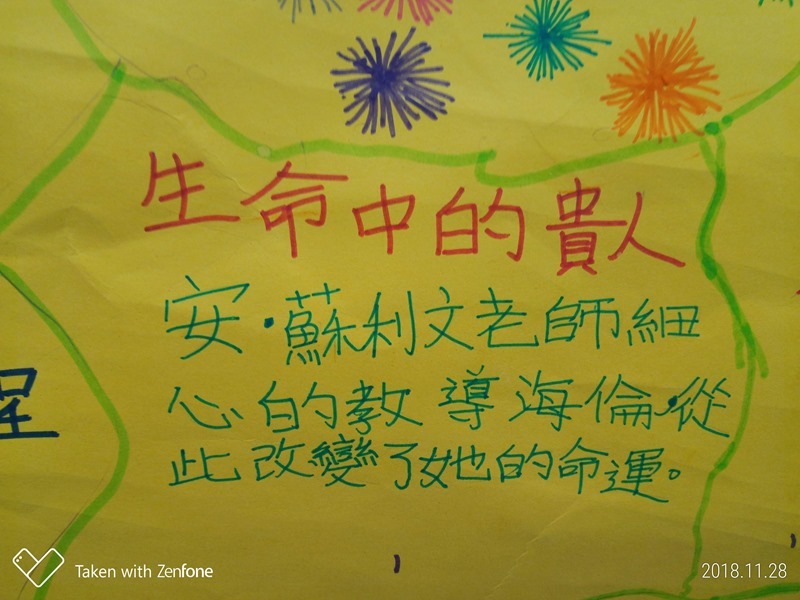 生命中的貴人
安·蘇利文老師細
心的教導海倫,從
此改變了她的命運。
Taken with Zenfone
2018.11.28